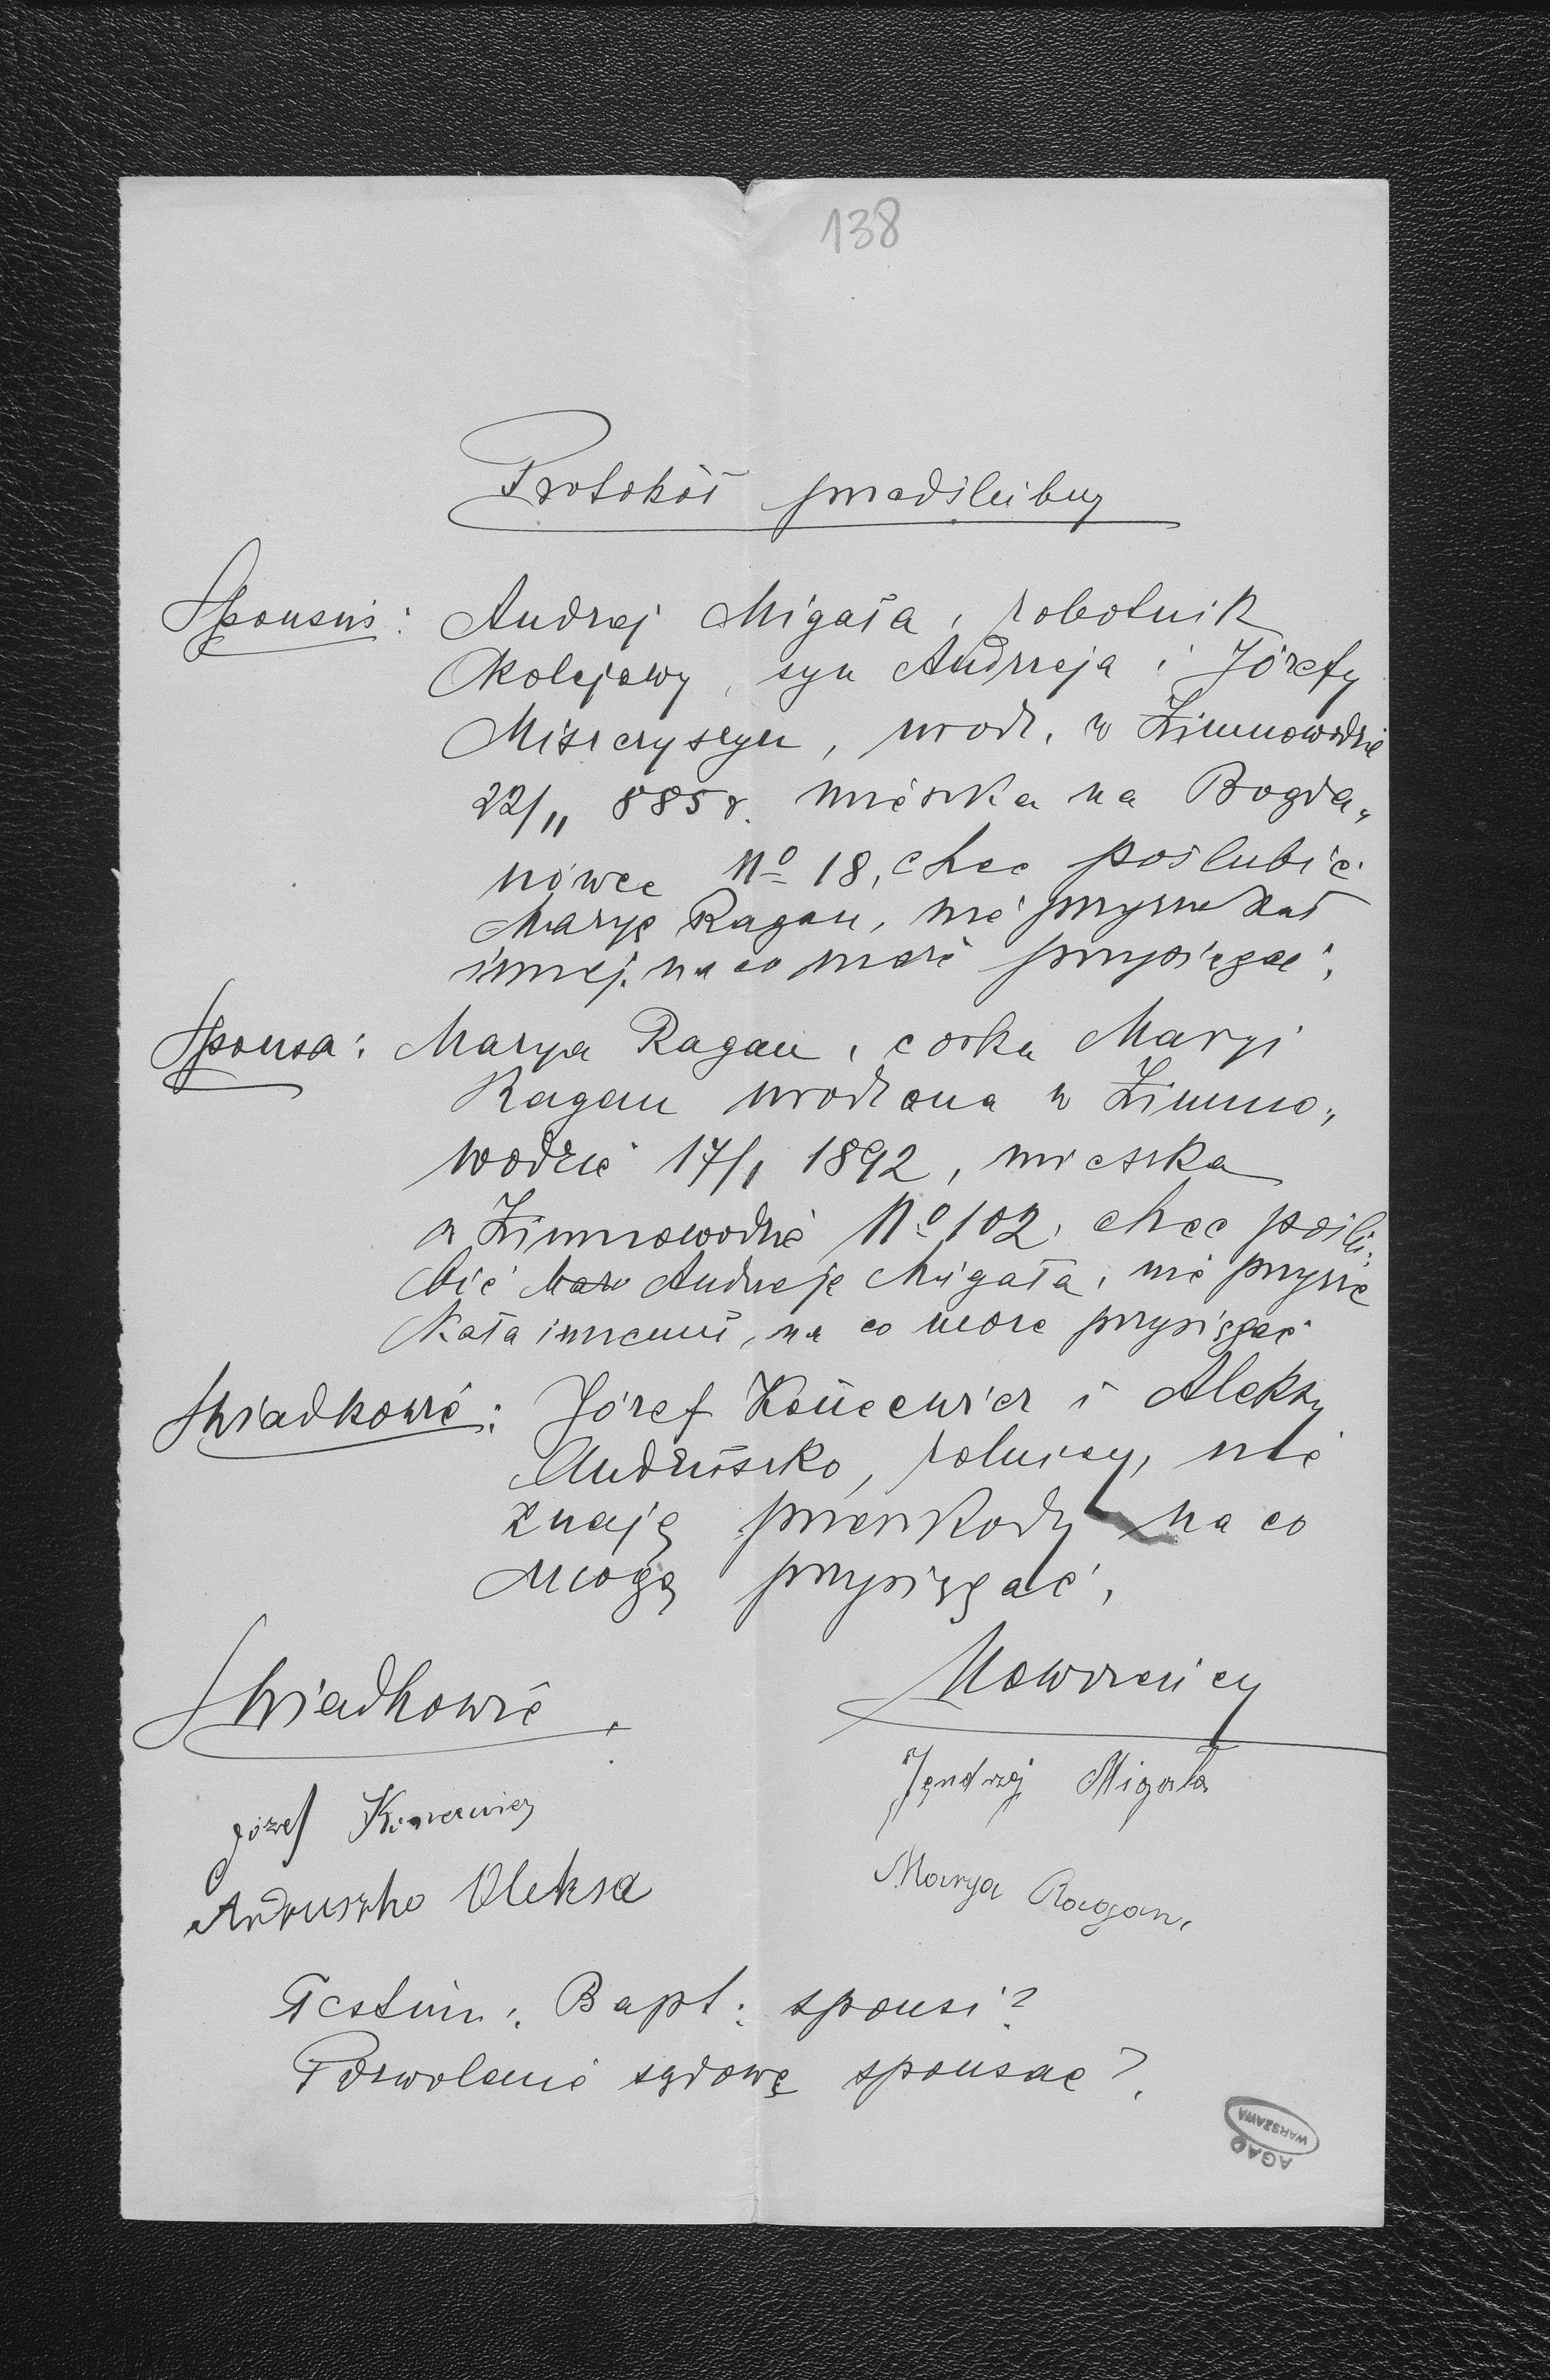 138
Protokół przedślubny
Sponsus: Andrzej Migała, robotnik
kolejowy, syn Andrzeja i Józefy
Miszczyszyn, urodz. w Zimnowodzie
22/11 885 r. mieszka na Bogda„
nówce No 18, chce poślubić
Maryę Ragan, nie przyrzekał
innej, na co może przysięgać,
Sponsa: Marya Ragan, córka Maryi
Ragan urodzona w Zimno„
wodzie 17/1 1892, mieszka
w Zimnowodzie No 102, chce poślu„
bić Andrzeja Migała, nie przyrze
kała innemu, na co może przysięgać
Świadkowie: Józef i Aleksy
Andruszko, rolnicy, nie
znają przeszkody na co
mogą przysięgać,
Świadkowie. Nowożeńcy
Jęndrzej Migała
Józef
Marya Ragan,
Andruszko Oleksa
Testim: Bapt: sponsi?
Pozwolenie sądowe sponsae?
AGAD
WARSZAWA